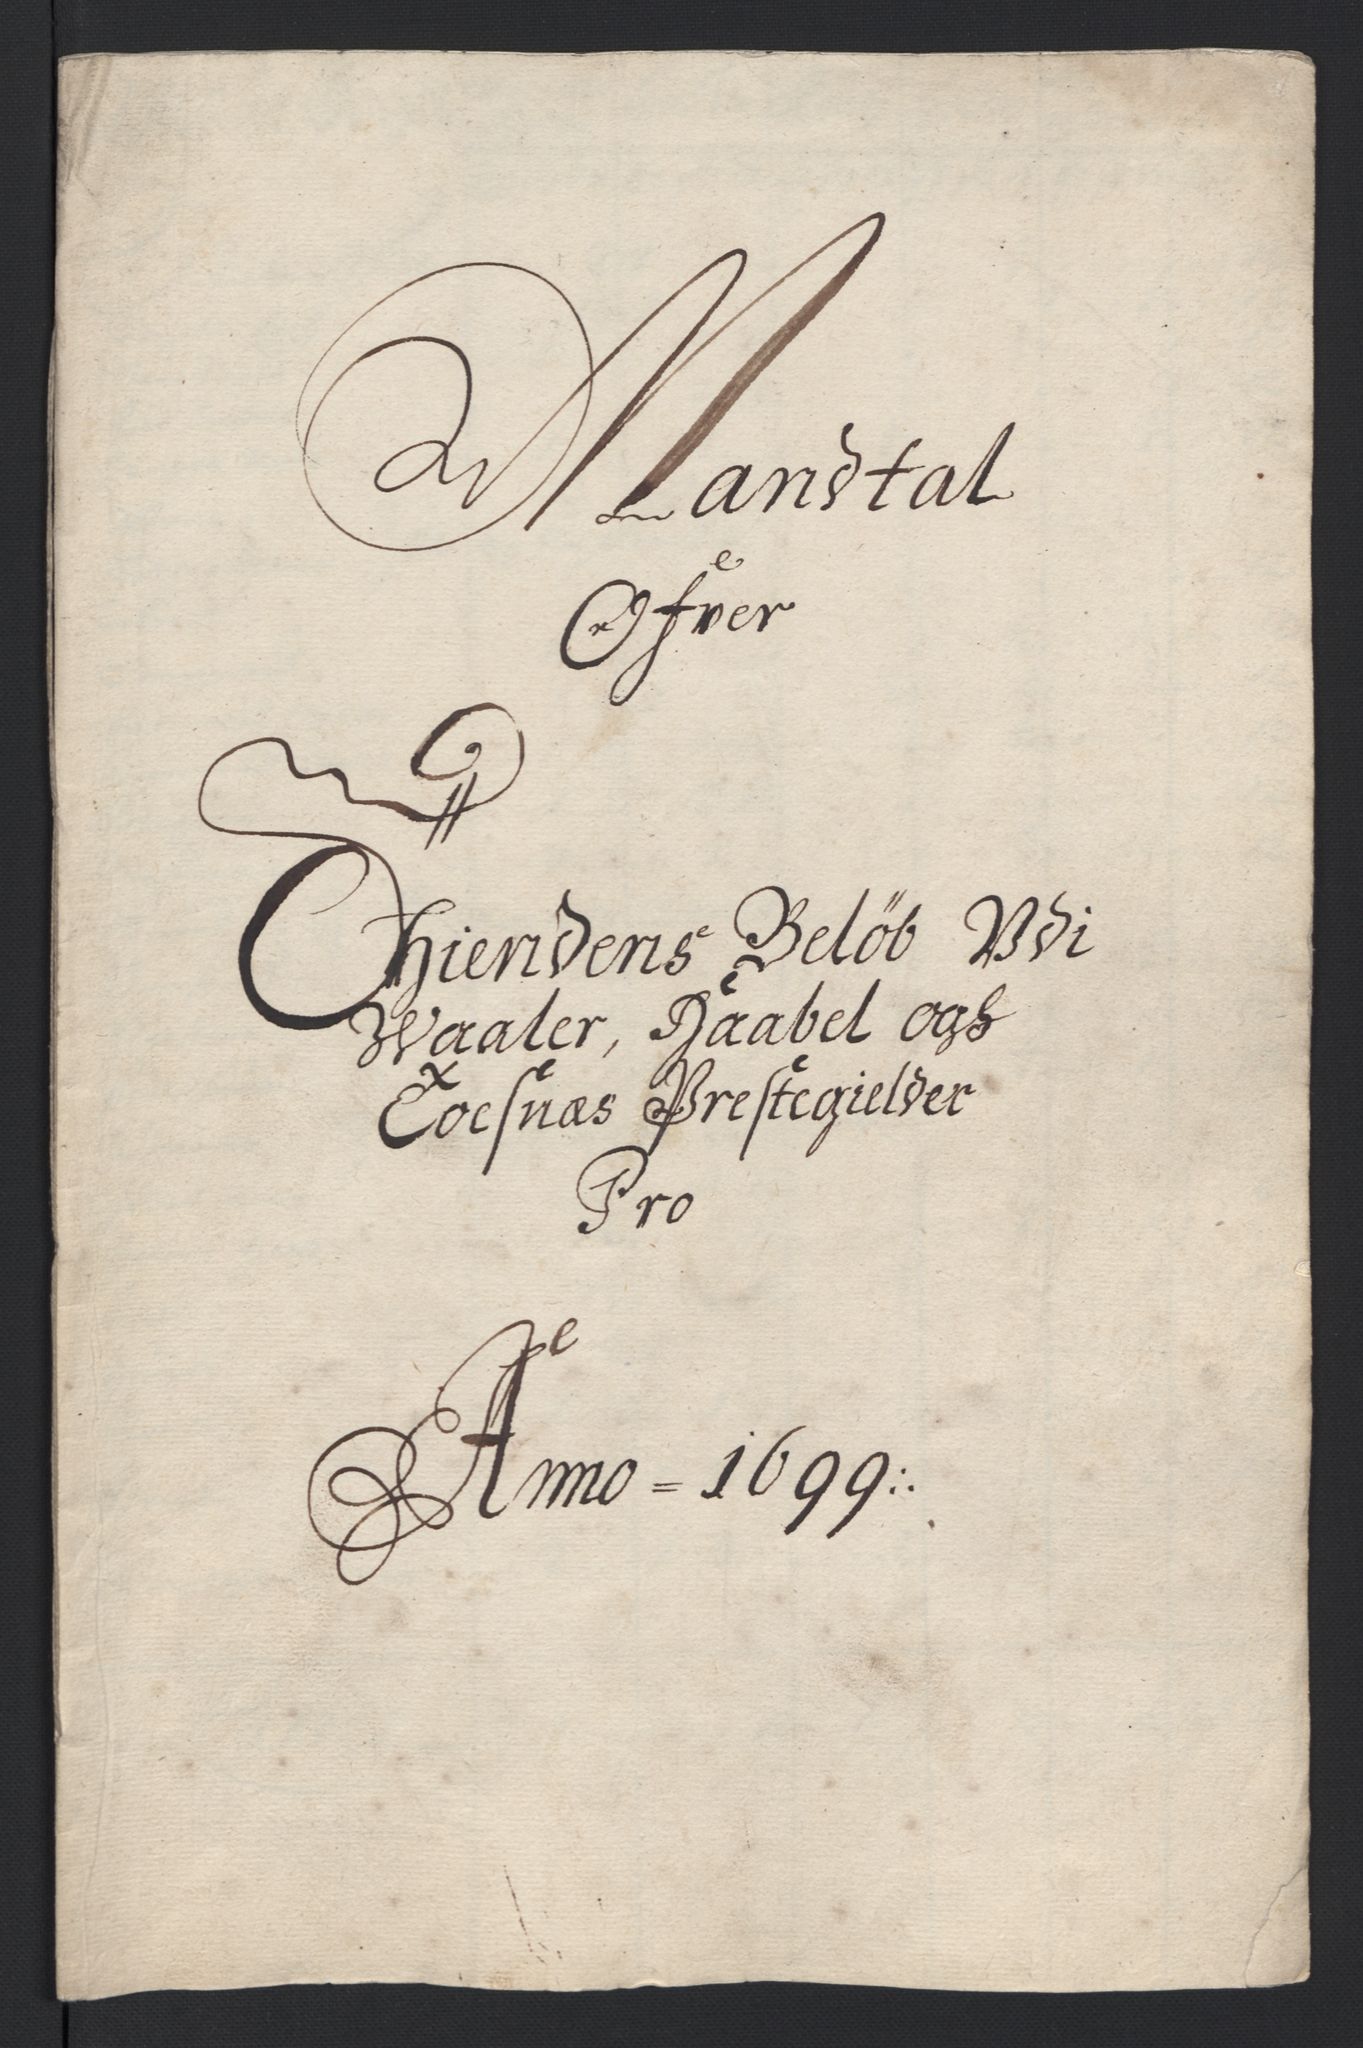 Mandtal
Ofver
Thiendens Belöb Vdi
Waaler, Haabel ogh
Toesnæs Prestegielder
Pro
Anno = 1699:.